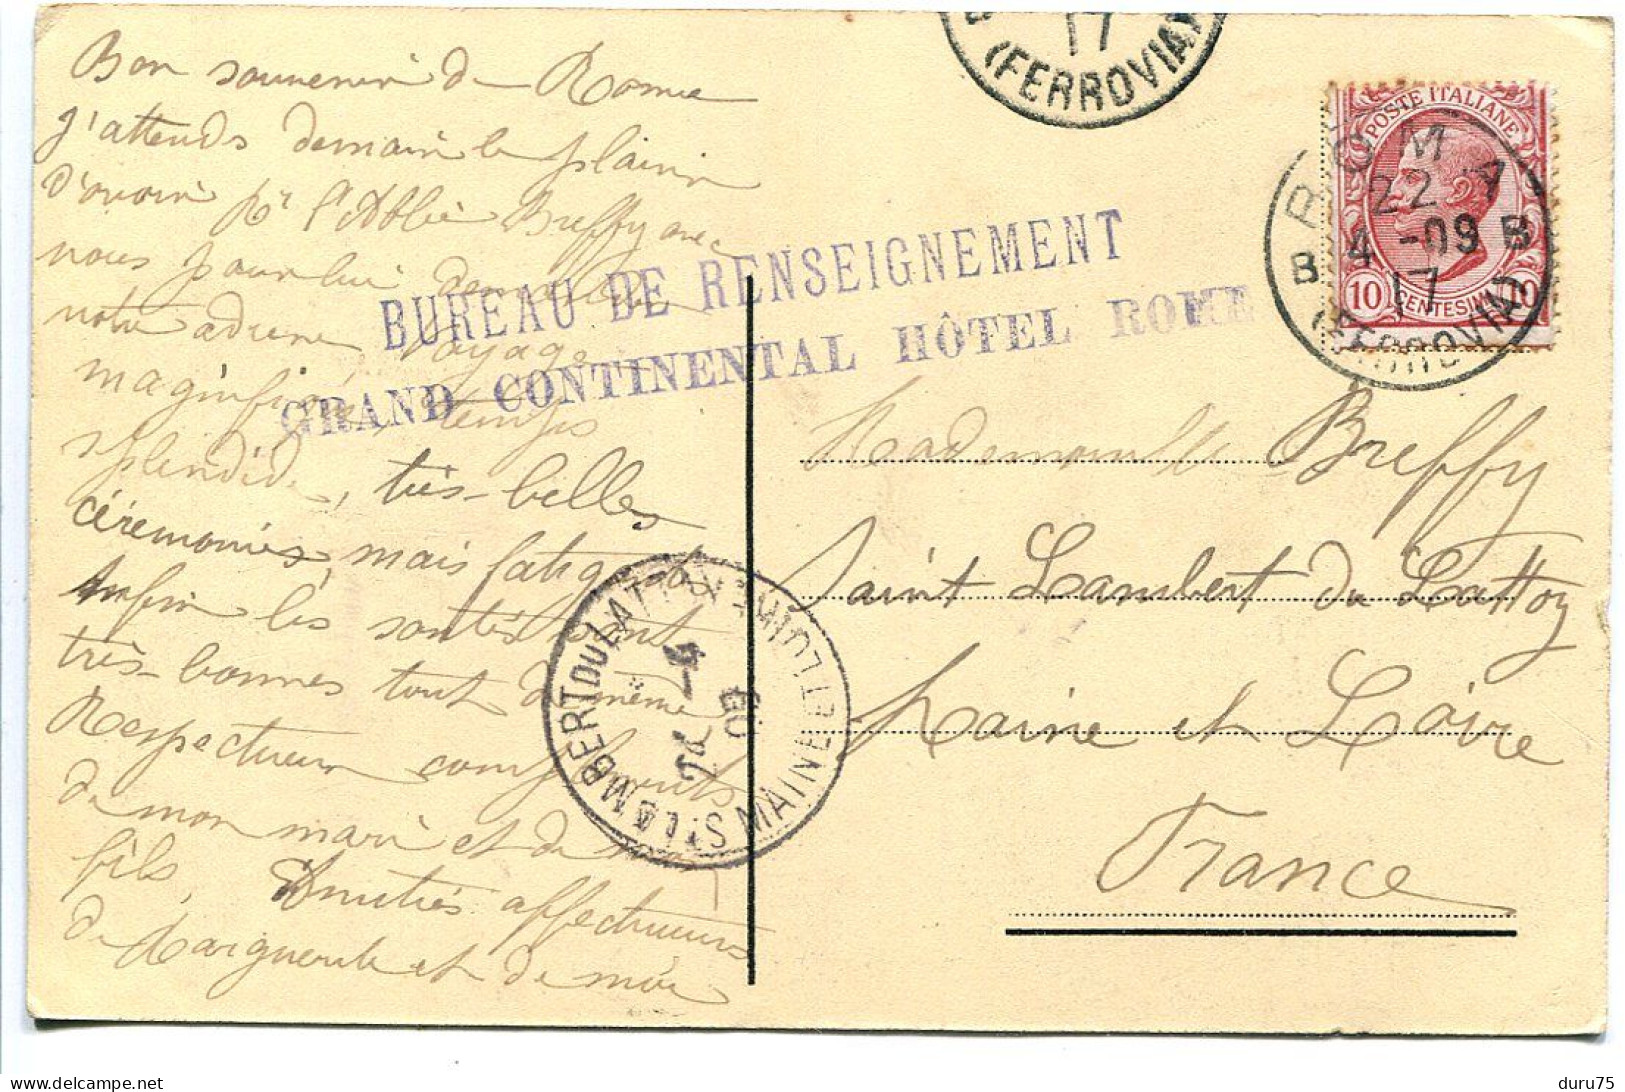 Bon souvenir de Rome
J'attends demain le plaisir
d'avoir Mr l'Abbé Breffy avec
nous pour lui demander
notre adresse. Voyage
magnifique, temps
splendide, très-belles
cérémonies, mais fatigant
Enfin les santés sont
très-bonnes tout de même
Respectueux compliments
de mon mari et de mon
fils. Amitiés affectueuses
de Marguerite et de moi
BUREAU DE RENSEIGNEMENT
GRAND CONTINENTAL HÔTEL ROME
17
(FERROVIA)
POSTE ITALIANE
10 CENTESIMI 10
ROMA
22 4
B 4 -09 B
17
(FERROVIA)
Mademoiselle Breffy
Saint Lambert du Lattay
Maine et Loire
France
ST LAMBERT DU LATTAY
MAINE ET LOIRE
09